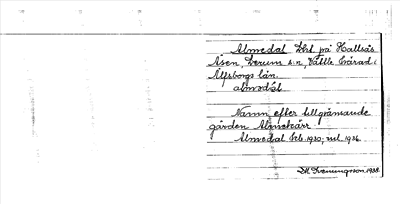 Almedal Lht. på Hallsås
Åsen, Lerum s:n, Vättle härad i
Älfsborgs län.
almedal
Namn efter tillgränsande
gården Almekärr
Almedal Feb. 1930; rul. 1936
1938